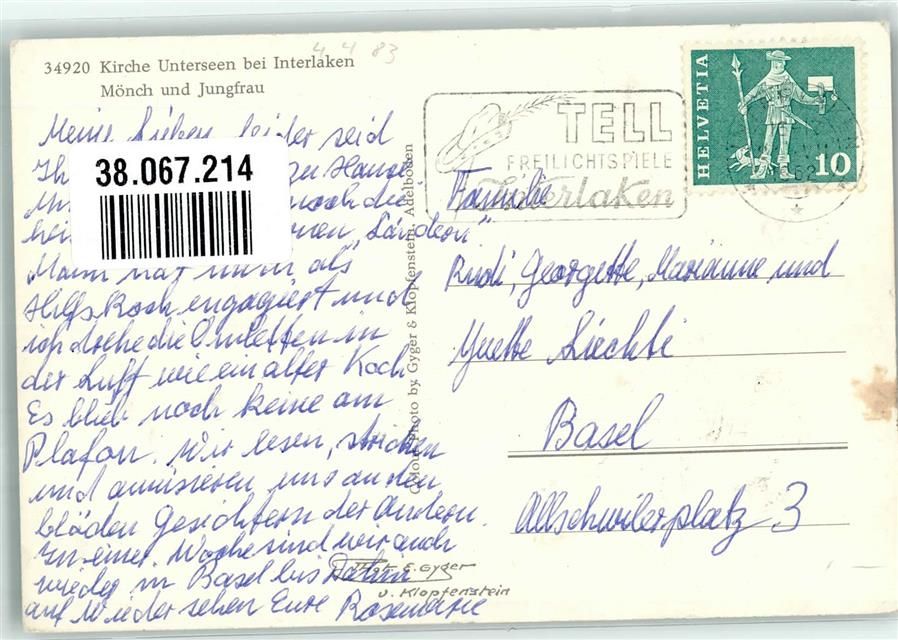 4 4 83
34920 Kirche Unterseen bei Interlaken
Mönch und Jungfrau
Meine Lieben, leider seid
Ihr zu Hause
noch die
Ländern"
Mann hat mich als
Hilfskoch engagiert und
ich drehe die Omletten in
der Luft wie ein alter Koch
Es blieb noch keine am
Plafon. Wir lesen, stricken
und amüsieren uns an den
blöden Gesichtern der Andern.
In einer Woche sind wir auch
wieder in Basel bis dahin
auf Wiedersehen Eure Rosemarie
38.067.214
Colourphoto by Gyger & Klopfenstein, Adelboden
Phot. E. Gyger
u. Klopfenstein
TELL
FREILICHTSPIELE
Interlaken
HELVETIA
10
Familie
Rudi, Georgette, Marianne und
Yvette Liechti
Basel
Allschwilerplatz 3